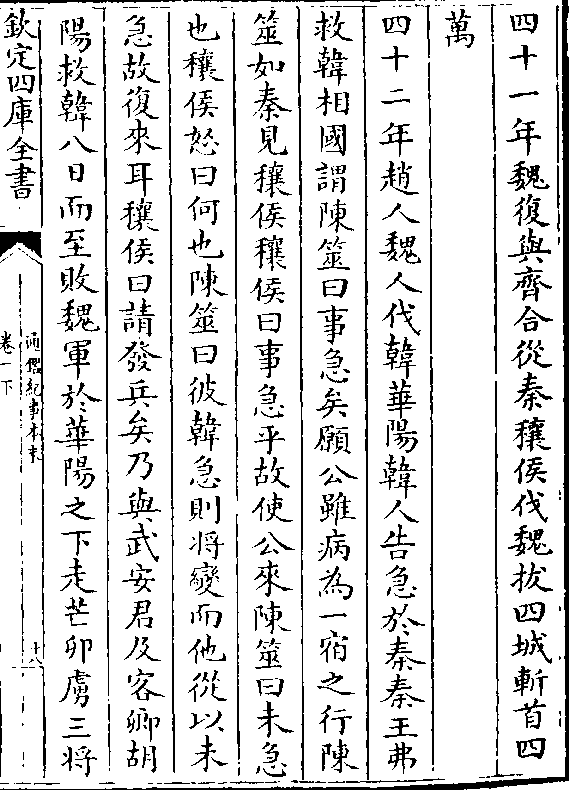 四十一年魏復與齊合從秦穰侯伐魏拔四城斬首四
萬
四十二年趙人魏人伐韓華陽韓人告急於秦秦王弗
救韓相國謂陳筮曰事急矣願公雖病為一宿之行陳
筮如秦見穰侯穰侯曰事急乎故使公來陳筮曰未急
也穰侯怒曰何也陳筮曰彼韓急則將變而他從以未
急故復來耳穰侯曰請發兵矣乃與武安君及客卿胡
陽救韓八日而至敗魏軍於華陽之下走芒卯虜三將
欽定四庫全書
通鑑紀事本末
卷一下
十八